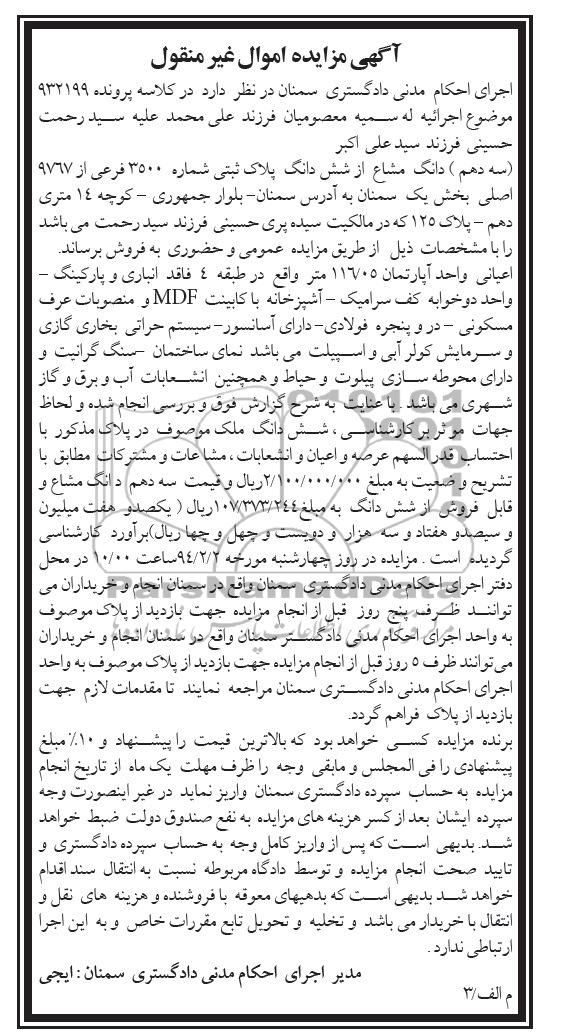 آگهی مزایده اموال غیر منقول
اجرای احکام مدنی دادگستری سمنان در نظر دارد در کلاسه پرونده ۹۳۲۱۹۹
موضوع اجرائیه له سمیه معصومیان فرزند علی محمد علیه سید رحمت
حسینی فرزند سید علی اکبر
(سه دهم ) دانگ مشاع از شش دانگ پلاک ثبتی شماره ۳۵۰۰ فرعی از ۹۷۶۷
اصلی بخش یک سمنان به آدرس سمنان- بلوار جمهوری – کوچه ۱۴ متری
دهم – پلاک ۱۲۵ که در مالکیت سیده پری حسینی فرزند سید رحمت می باشد
را با مشخصات ذیل از طریق مزایده عمومی و حضوری به فروش برساند.
اعیانی واحد آپارتمان ۱۱۶/۰۵ متر واقع در طبقه ۴ فاقد انباری و پارکینگ –
واحد دوخوابه کف سرامیک – آشپزخانه با کابینت MDF و منصوبات عرف
مسکونی – در و پنجره فولادی- دارای آسانسور- سیستم حراتی بخاری گازی
و سرمایش کولر آبی و اسپیلت می باشد نمای ساختمان –سنگ گرانیت و
دارای محوطه سازی پیلوت و حیاط و همچنین انشعابات آب و برق و گاز
شهری می باشد . با عنایت به شرح گزارش فوق و بررسی انجام شده و لحاظ
جهات موثر بر کارشناسی ، شش دانگ ملک موصوف در پلاک مذکور با
احتساب قدرالسهم عرصه و اعیان و انشعابات ، مشاعات و مشترکات مطابق با
تشریح وضعیت به مبلغ ۲/۱۰۰/۰۰۰/۰۰۰ریال و قیمت سه دهم دانگ مشاع و
قابل فروش از شش دانگ به مبلغ ۱۰۷/۳۷۳/۲۴۴ریال ( یکصدو هفت میلیون
و سیصدو هفتاد و سه هزار و دویست و چهل و چهار ریال)برآورد کارشناسی
گردیده است . مزایده در روز چهارشنبه مورخه ۹۴/۲/۲ساعت ۱۰/۰۰ در محل
دفتر اجرای احکام مدنی دادگستری سمنان واقع در سمنان انجام و خریداران می
توانند ظرف پنج روز قبل از انجام مزایده جهت بازدید از پلاک موصوف
به واحد اجرای احکام مدنی دادگستر سمنان واقع در سمنان انجام و خریداران
می‌توانند ظرف ۵ روز قبل از انجام مزایده جهت بازدید از پلاک موصوف به واحد
اجرای احکام مدنی دادگستری سمنان مراجعه نمایند تا مقدمات لازم جهت
بازدید از پلاک فراهم گردد.
برنده مزایده کسی خواهد بود که بالاترین قیمت را پیشنهاد و ۱۰٪ مبلغ
پیشنهادی را فی المجلس و مابقی وجه را ظرف مهلت یک ماه از تاریخ انجام
مزایده به حساب سپرده دادگستری سمنان واریز نماید در غیر اینصورت وجه
سپرده ایشان بعد از کسر هزینه های مزایده به نفع صندوق دولت ضبط خواهد
شد. بدیهی است که پس از واریز کامل وجه به حساب سپرده دادگستری و
تایید صحت انجام مزایده و توسط دادگاه مربوطه نسبت به انتقال سند اقدام
خواهد شد بدیهی است که بدهیهای معوقه با فروشنده و هزینه های نقل و
انتقال با خریدار می باشد و تخلیه و تحویل تابع مقررات خاص و به این اجرا
ارتباطی ندارد .
مدیر اجرای احکام مدنی دادگستری سمنان : ایجی
م الف/۳
ParsNamadData